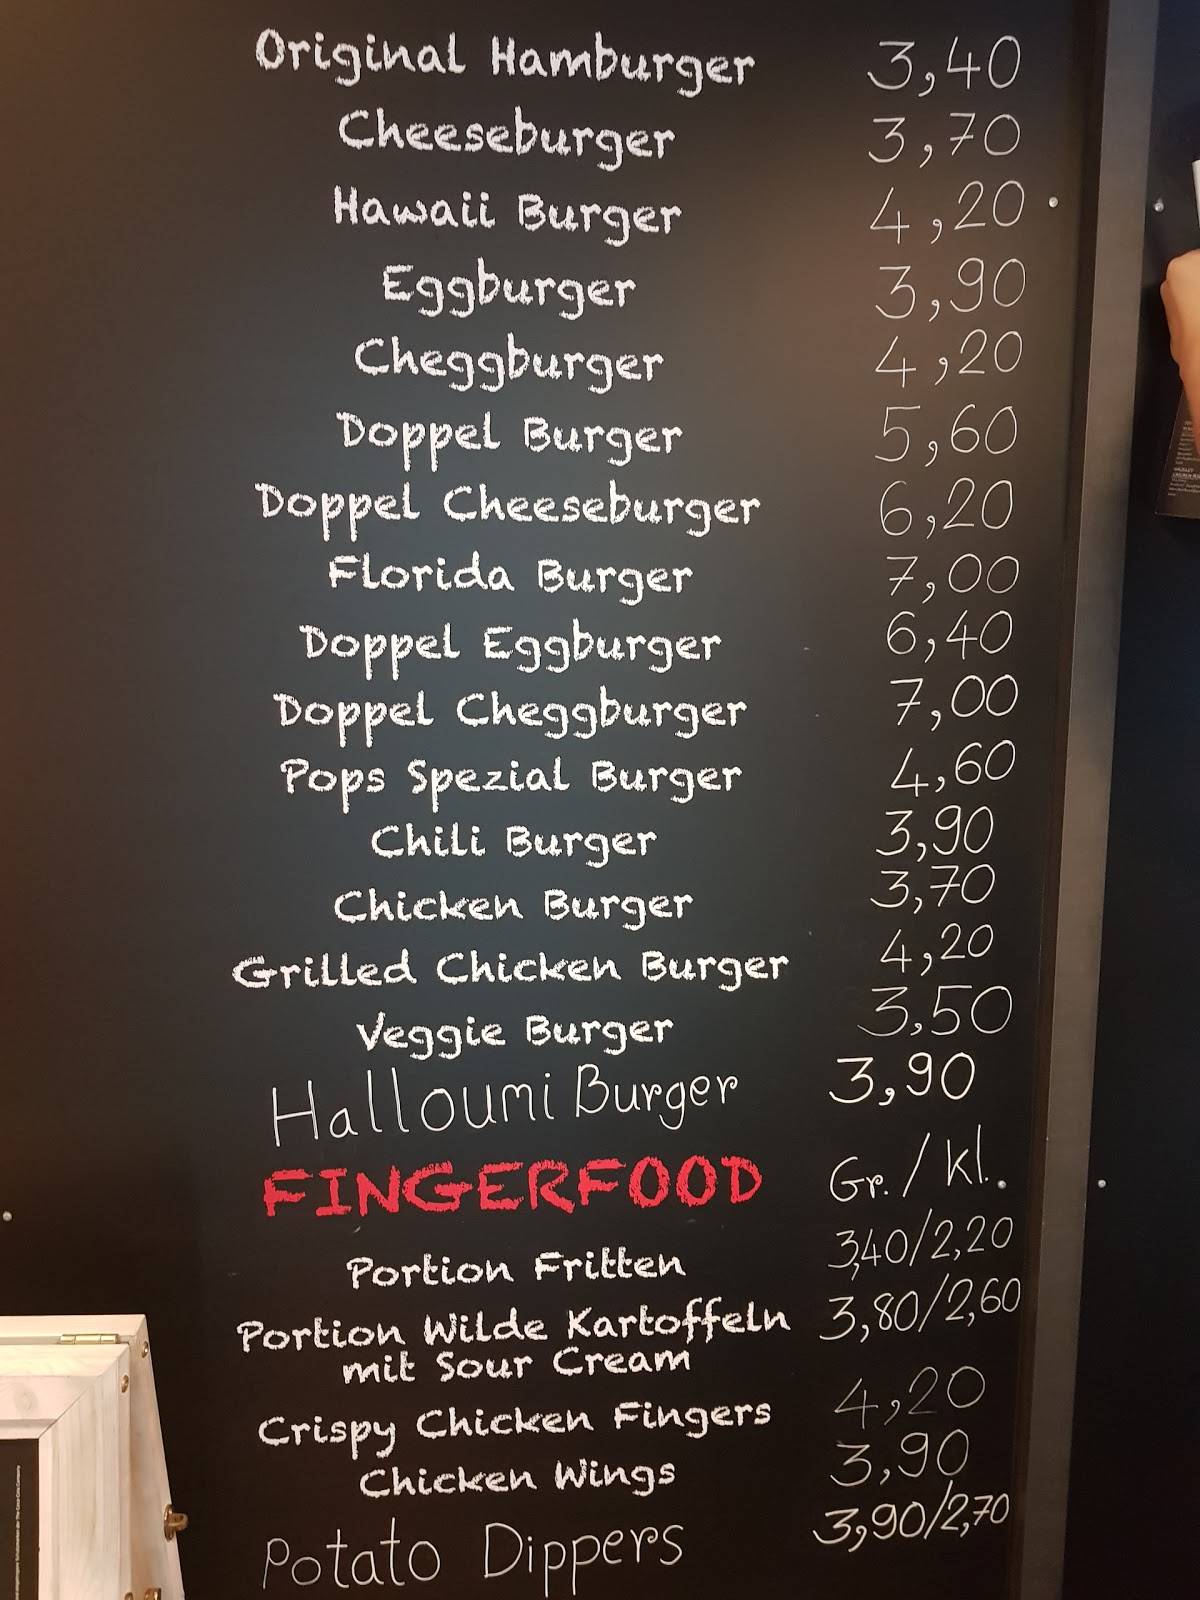 Original Hamburger 3,40
Cheeseburger 3,70
Hawaii Burger 4,20
Eggburger 3,90
Cheggburger 4,20
Doppel Burger 5,60
Doppel Cheeseburger 6,20
Florida Burger 7,00
Doppel Eggburger 6,40
Doppel Cheggburger 7,00
Pops Spezial Burger 4,60
Chili Burger 3,90
Chicken Burger 3,70
Grilled Chicken Burger 4,20
Veggie Burger 3,50
Halloumi Burger 3,90
FINGERFOOD Gr./Kl.
Portion Fritten 3,40/2,20
Portion Wilde Kartoffeln 3,80/2,60
mit Sour Cream
Crispy Chicken Fingers 4,20
Chicken Wings 3,90
Potato Dippers 3,90/2,70